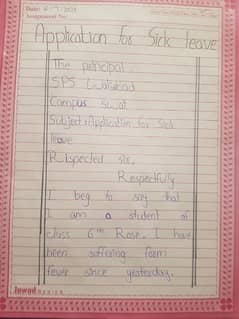 Date:
Assignment No:
Application for Sick leave
The principal
SPS
Campus swat
Subject:Application for Sick
leave
Rispected sir,
Respectfully
I beg to say that
I am a student of
class 6th Rose. I have
been suffering form
fever since yesterday.